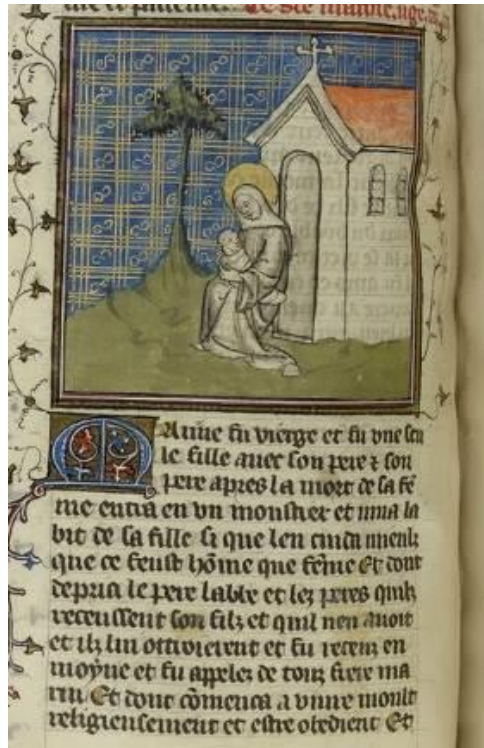 et pacience. De ste marine vge.
Marine fu vierge et fu vne seu
le fille auec son pere ⁊ son
pere apres la mort de sa fẽ
me entra en vn monstier et mua la
bit de sa fille si que len cuida mieulx
que ce feust hõme que fẽme Et dont
depria le pere labbe et les freres quilz
receussent son filz et quil nen auoit
et ilz lui ottroierent et fu receu en
moyne et fu appelez de touz frere ma
rin Et dont cõmenca a viure moult
religieusement et estre obedient Et